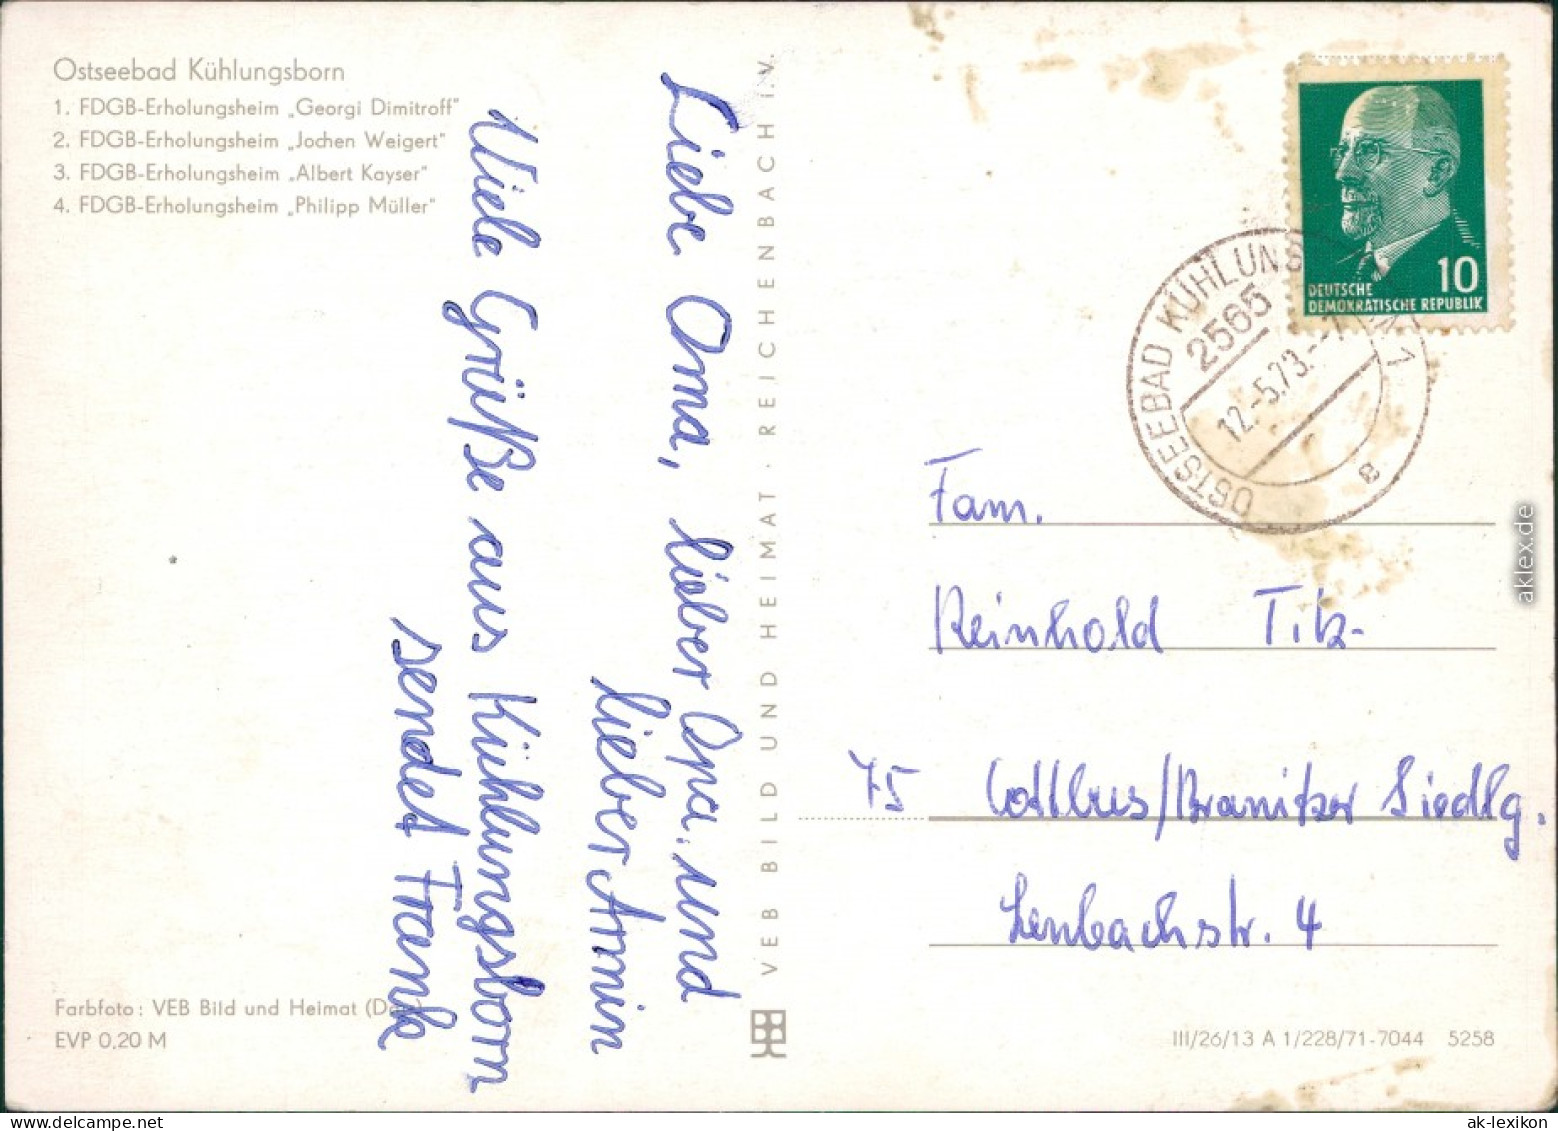 Ostseebad Kühlungsborn
1. FDGB-Erholungsheim „Georgi Dimitroff"
2. FDGB-Erholungsheim „Jochen Weigert"
3. FDGB-Erholungsheim „Albert Kayser"
4. FDGB-Erholungsheim „Philipp Müller"
Liebe Oma, lieber Opa und
lieber Armin
Viele Grüße aus Kühlungsborn
sendet Frank
Farbfoto: VEB Bild und Heimat
EVP 0,20 M
VEB BILD UND HEIMAT · REICHENBACH I.V.
10
DEUTSCHE
DEMOKRATISCHE REPUBLIK
OSTSEEBAD KÜHLUNGS
2565
12.-5.73.-7
a
Fam.
Reinhold
75 Cottbus/Branitzer Siedlg.
Lenbachstr. 4
III/26/13 A 1/228/71-7044 5258
aklex.de
www.delcampe.net
ak-lexikon